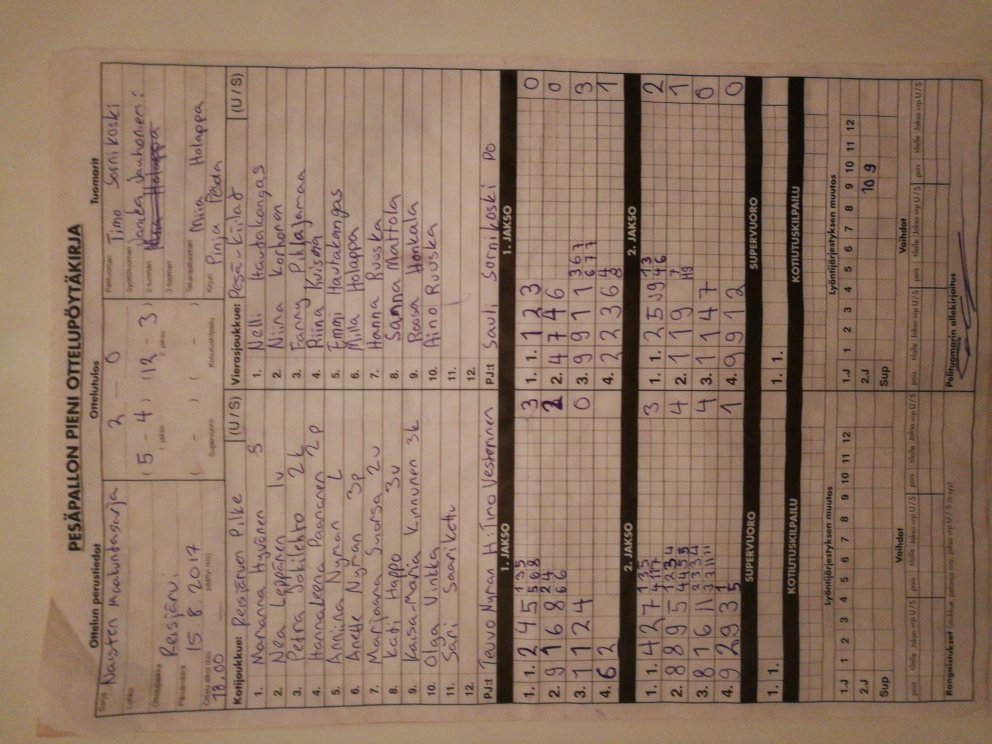 PESÄPALLON PIENI OTTELUPÖYTÄKIRJA
Ottelun perustiedot
Ottelutulos
Tuomarit
Sarja
Naisten Maakuntasarja
Lohko
Ottelupaikka
Reisjärvi
Päivämäärä
15.8.2017
18.00
2 – 0
(5 – 4) (12 – 3)
1. jakso
2. jakso
( – ) ( – )
Supervuoro
Kotiutuskilpailu
Pelituomari Timo Sornikoski
Syöttötuomari
2-tuomari
3-tuomari
Takarajatuomari Miia Holappa
Kirjuri Pinja Pesola
Kotijoukkue: Reisjärven Pilke (U / S)
1. Marianna Hyvönen S
2. Nea Leppänen 1v
3. Petra Jokilehto 2k
4. HannaLeena Paananen 2p
5. Anniina Nyman L
6. Anette Nyman 3p
7. Marijaana Suorsa 2v
8. Kati Happo 3v
9. Kaisa-Maria Kinnunen 3k
10. Olga Vintka
11. Sari Saarikettu
12.
PJ:t Teuvo Nyman H:Timo Vesterinen
Vierasjoukkue: Pesä-Kiilat (U / S)
1. Nelli Hautakangas
2. Niina Korhonen
3. Fanny Pihlajamaa
4. Riina Kuisma
5. Emmi Hautakangas
6. Milla Holappa
7. Hanna Ruuska
8. Sanna Mattola
9. Roosa Honkala
10. Aino Ruuska
11.
12.
PJ:t Sauli Sornikoski PO
1. JAKSO
1. 1. 2 4 5 1 3 5 5 6 8 3
2. 9 1 6 8 2 4 6 6 2
3. 1 1 2 4 0
4. 6 2
1. JAKSO
1. 1. 1 2 3 0
2. 4 7 4 6 0
3. 9 9 1 1 3 6 7 6 7 7 3
4. 2 2 3 6 4 8 1
2. JAKSO
1. 1. 4 2 7 3
2. 8 8 9 5 4
3. 8 1 6 11 4
4. 9 2 9 3 1 5 1
2. JAKSO
1. 1. 2 5 9 2
2. 1 1 9 1
3. 1 1 4 7 0
4. 9 9 1 2 0
SUPERVUORO
1. 1.
SUPERVUORO
1. 1.
KOTIUTUSKILPAILU
KOTIUTUSKILPAILU
Lyöntijärjestyksen muutos
1.J 1 2 3 4 5 6 7 8 9 10 11 12
2.J
Sup
Lyöntijärjestyksen muutos
1.J 1 2 3 4 5 6 7 8 9 10 11 12
2.J 10 9
Sup
Vaihdot
pois tilalle Jakso vrp U / S pois tilalle Jakso vrp U / S
Vaihdot
pois tilalle Jakso vrp U / S pois tilalle Jakso vrp U / S
Rangaistukset
Pelituomarin allekirjoitus